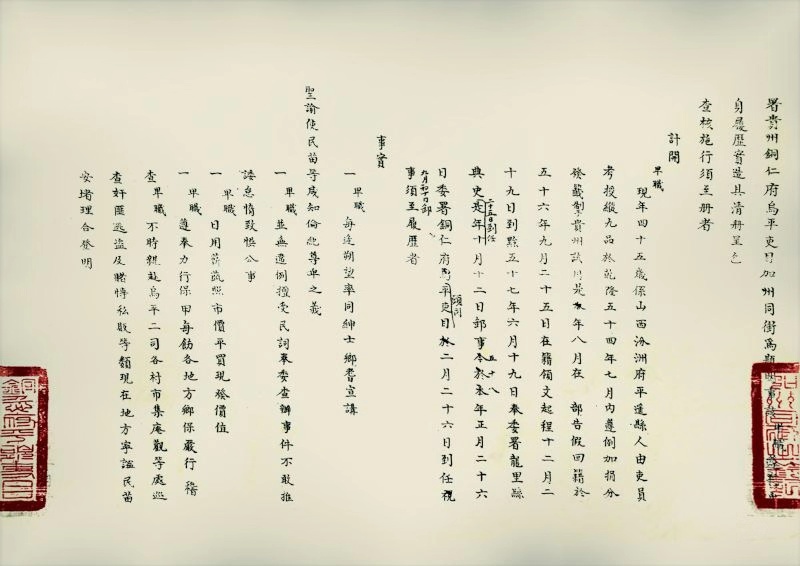 署貴州銅仁府烏平吏目加州同銜為顯明事
身履歷實造具清冊呈乞
查核施行須至冊者
計開
卑職 現年四十五歲係山西汾洲府平遙縣人由吏員
考授縱九品於乾隆五十四年七月內遵例加捐分
發籤掣貴州試用是年八月在 部告假回籍於
五十六年九月二十五日在籍領文起程十二月二
十九日到黔五十七年六月十九日奉委署龍里縣
典史二十五日到任是年十月十二日卸事今於五十八年正月二十六
日委署銅仁府烏平吏目於二月二十六日到任視
事須至履歷者
事實
一 卑職 每逢朔望率同紳士鄉耆宣講
聖諭使民苗等咸知倫紀尊卑之義
一 卑職 並無違例擅受民詞奉委查辦事件不敢推
諉怠惰致悞公事
一 卑職 日用薪蔬照市價平買現發價值
一 卑職 遵奉力行保甲每飭各地方鄉保嚴行稽
查卑職不時親赴烏平二司各村市集庵觀等處巡
查奸匪逃盜及賭愽私販等類現在地方寧謐民苗
安堵理合登明